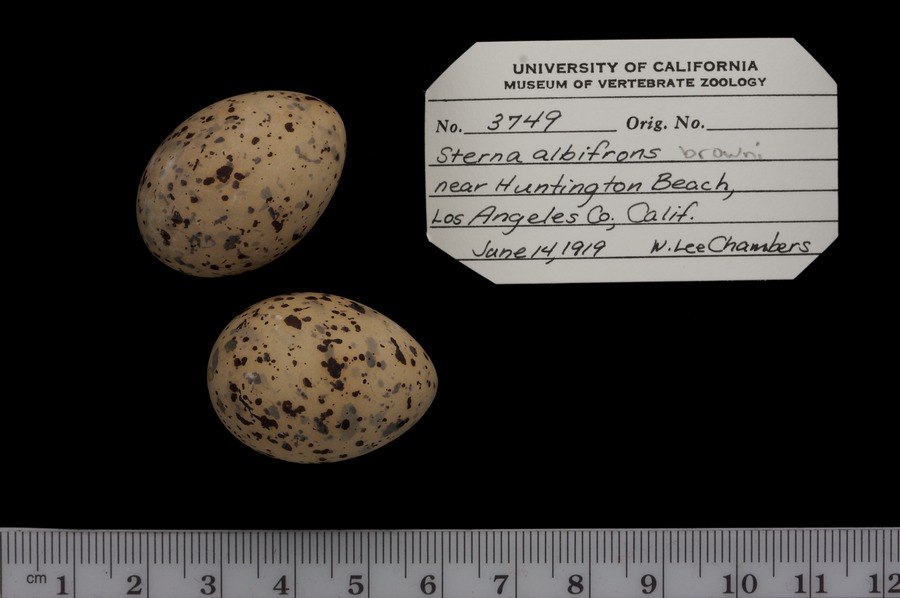 UNIVERSITY OF CALIFORNIA
MUSEUM OF VERTEBRATE ZOOLOGY
No. 3749 Orig. No.
Sterna albifrons browni
near Huntington Beach,
Los Angeles Co., Calif.
June 14, 1919 W. Lee Chambers
cm 1 2 3 4 5 6 7 8 9 10 11 12